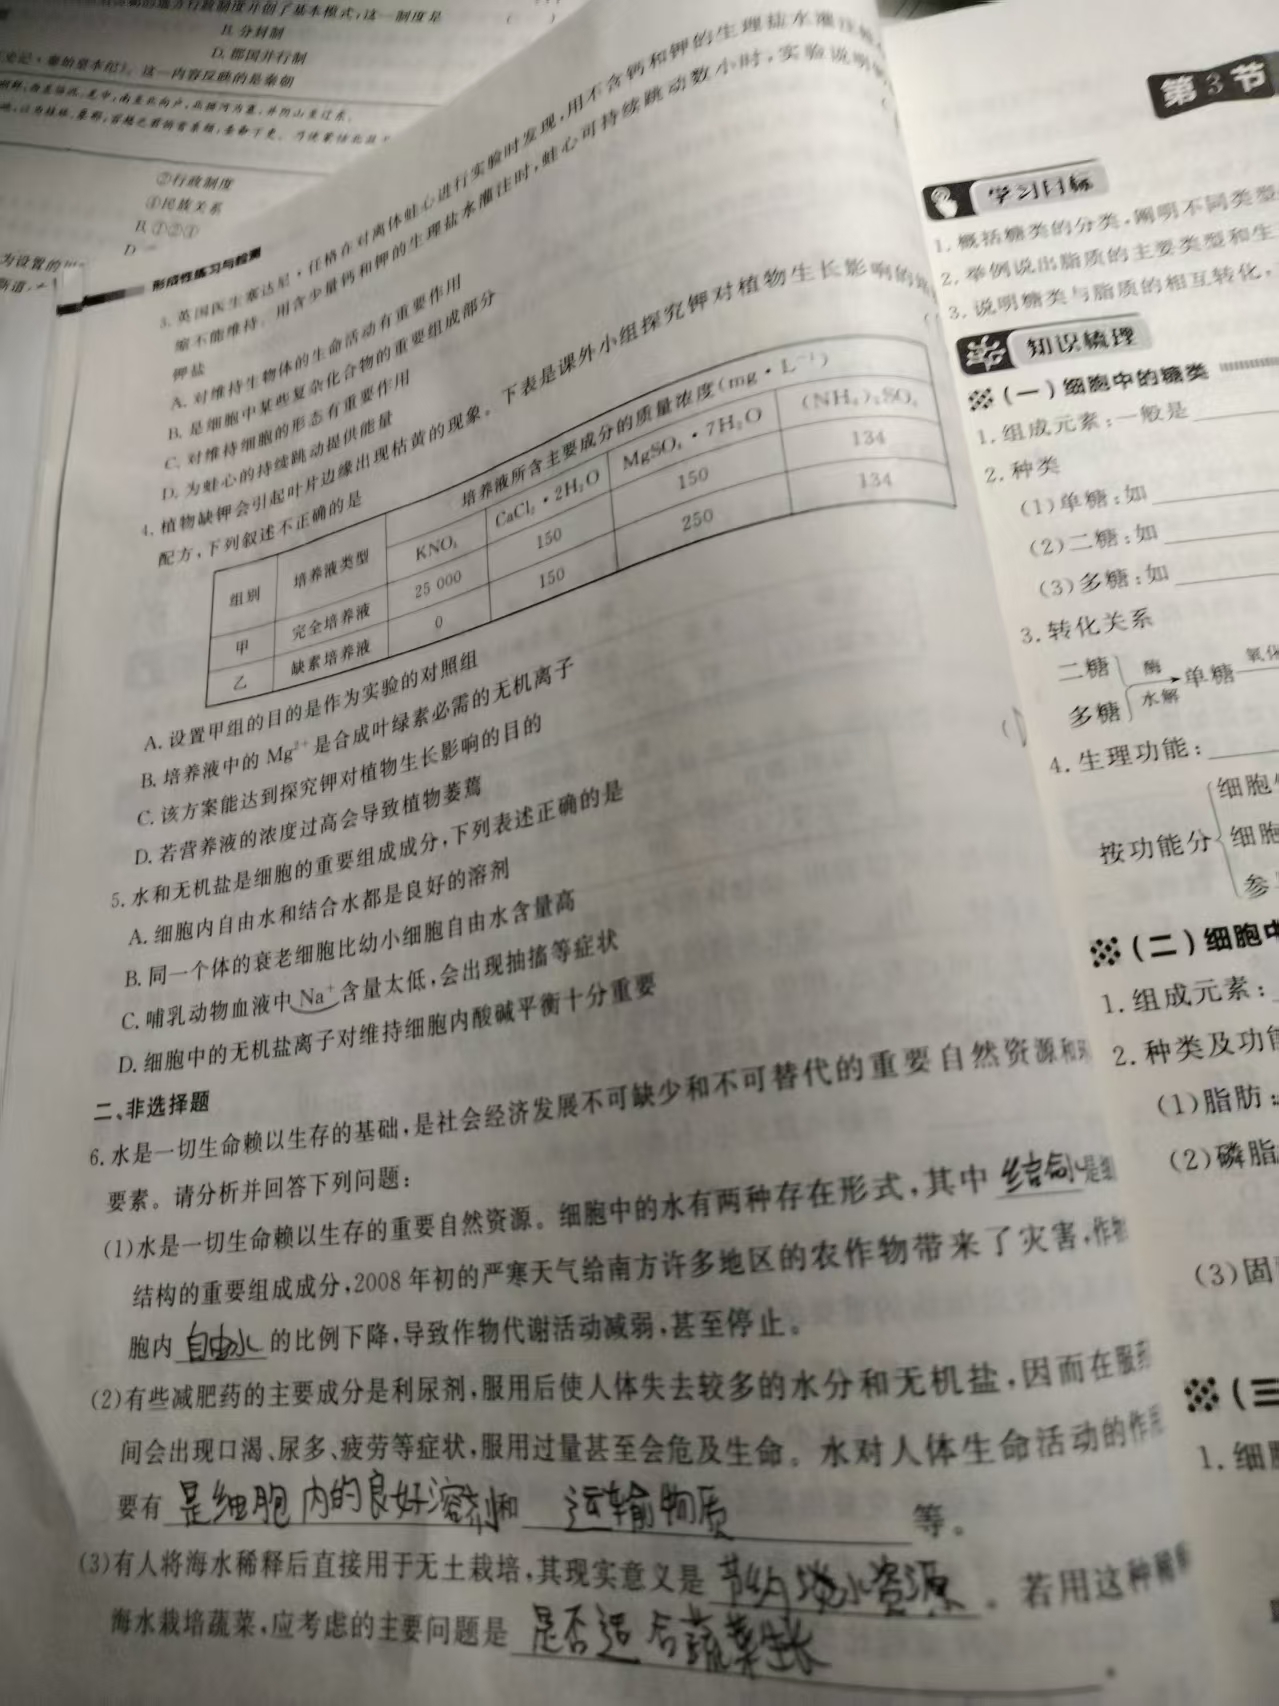 B. 分封制
D. 郡国并行制
这一内容反映的是秦朝
②行政制度
④民族关系
B. ①②④
D
为设置的
形成性练习与检测
3. 英国医生塞达尼·任格在对离体蛙心进行实验时发现,用不含钙和钾的生理盐水灌注
缩不能维持。用含少量钙和钾的生理盐水灌注时,蛙心可持续跳动数小时,实验说明
钾盐
A. 对维持生物体的生命活动有重要作用
B. 是细胞中某些复杂化合物的重要组成部分
C. 对维持细胞的形态有重要作用
D. 为蛙心的持续跳动提供能量
4. 植物缺钾会引起叶片边缘出现枯黄的现象。下表是课外小组探究钾对植物生长影响的
配方,下列叙述不正确的是
组别 培养液类型 培养液所含主要成分的质量浓度(mg·L⁻¹)
KNO₃ CaCl₂·2H₂O MgSO₄·7H₂O (NH₄)₂SO₄
甲 完全培养液 25 000 150 150 134
乙 缺素培养液 0 150 250 134
A. 设置甲组的目的是作为实验的对照组
B. 培养液中的 Mg²⁺ 是合成叶绿素必需的无机离子
C. 该方案能达到探究钾对植物生长影响的目的
D. 若营养液的浓度过高会导致植物萎蔫
5. 水和无机盐是细胞的重要组成成分,下列表述正确的是
A. 细胞内自由水和结合水都是良好的溶剂
B. 同一个体的衰老细胞比幼小细胞自由水含量高
C. 哺乳动物血液中 Na⁺ 含量太低,会出现抽搐等症状
D. 细胞中的无机盐离子对维持细胞内酸碱平衡十分重要
二、非选择题
6. 水是一切生命赖以生存的基础,是社会经济发展不可缺少和不可替代的重要自然资源和
要素。请分析并回答下列问题:
(1)水是一切生命赖以生存的重要自然资源。细胞中的水有两种存在形式,其中 是
结构的重要组成成分,2008 年初的严寒天气给南方许多地区的农作物带来了灾害,作物
胞内 自由水 的比例下降,导致作物代谢活动减弱,甚至停止。
(2)有些减肥药的主要成分是利尿剂,服用后使人体失去较多的水分和无机盐,因而在服药
间会出现口渴、尿多、疲劳等症状,服用过量甚至会危及生命。水对人体生命活动的作用
要有 是细胞内的良好溶剂 和 运输物质 等。
(3)有人将海水稀释后直接用于无土栽培,其现实意义是 节约淡水资源 。若用这种稀释
海水栽培蔬菜,应考虑的主要问题是 是否适合蔬菜生长 。
第3节
学习目标
1. 概括糖类的分类,阐明不同类型
2. 举例说出脂质的主要类型和生
3. 说明糖类与脂质的相互转化,
知识梳理
(一)细胞中的糖类
1. 组成元素:一般是
2. 种类
(1)单糖:如
(2)二糖:如
(3)多糖:如
3. 转化关系
二糖 酶 单糖
多糖 水解
4. 生理功能:
细胞
按功能分 细胞
参
(二)细胞中
1. 组成元素:
2. 种类及功能
(1)脂肪:
(2)磷脂
(3)固
(三
1. 细胞